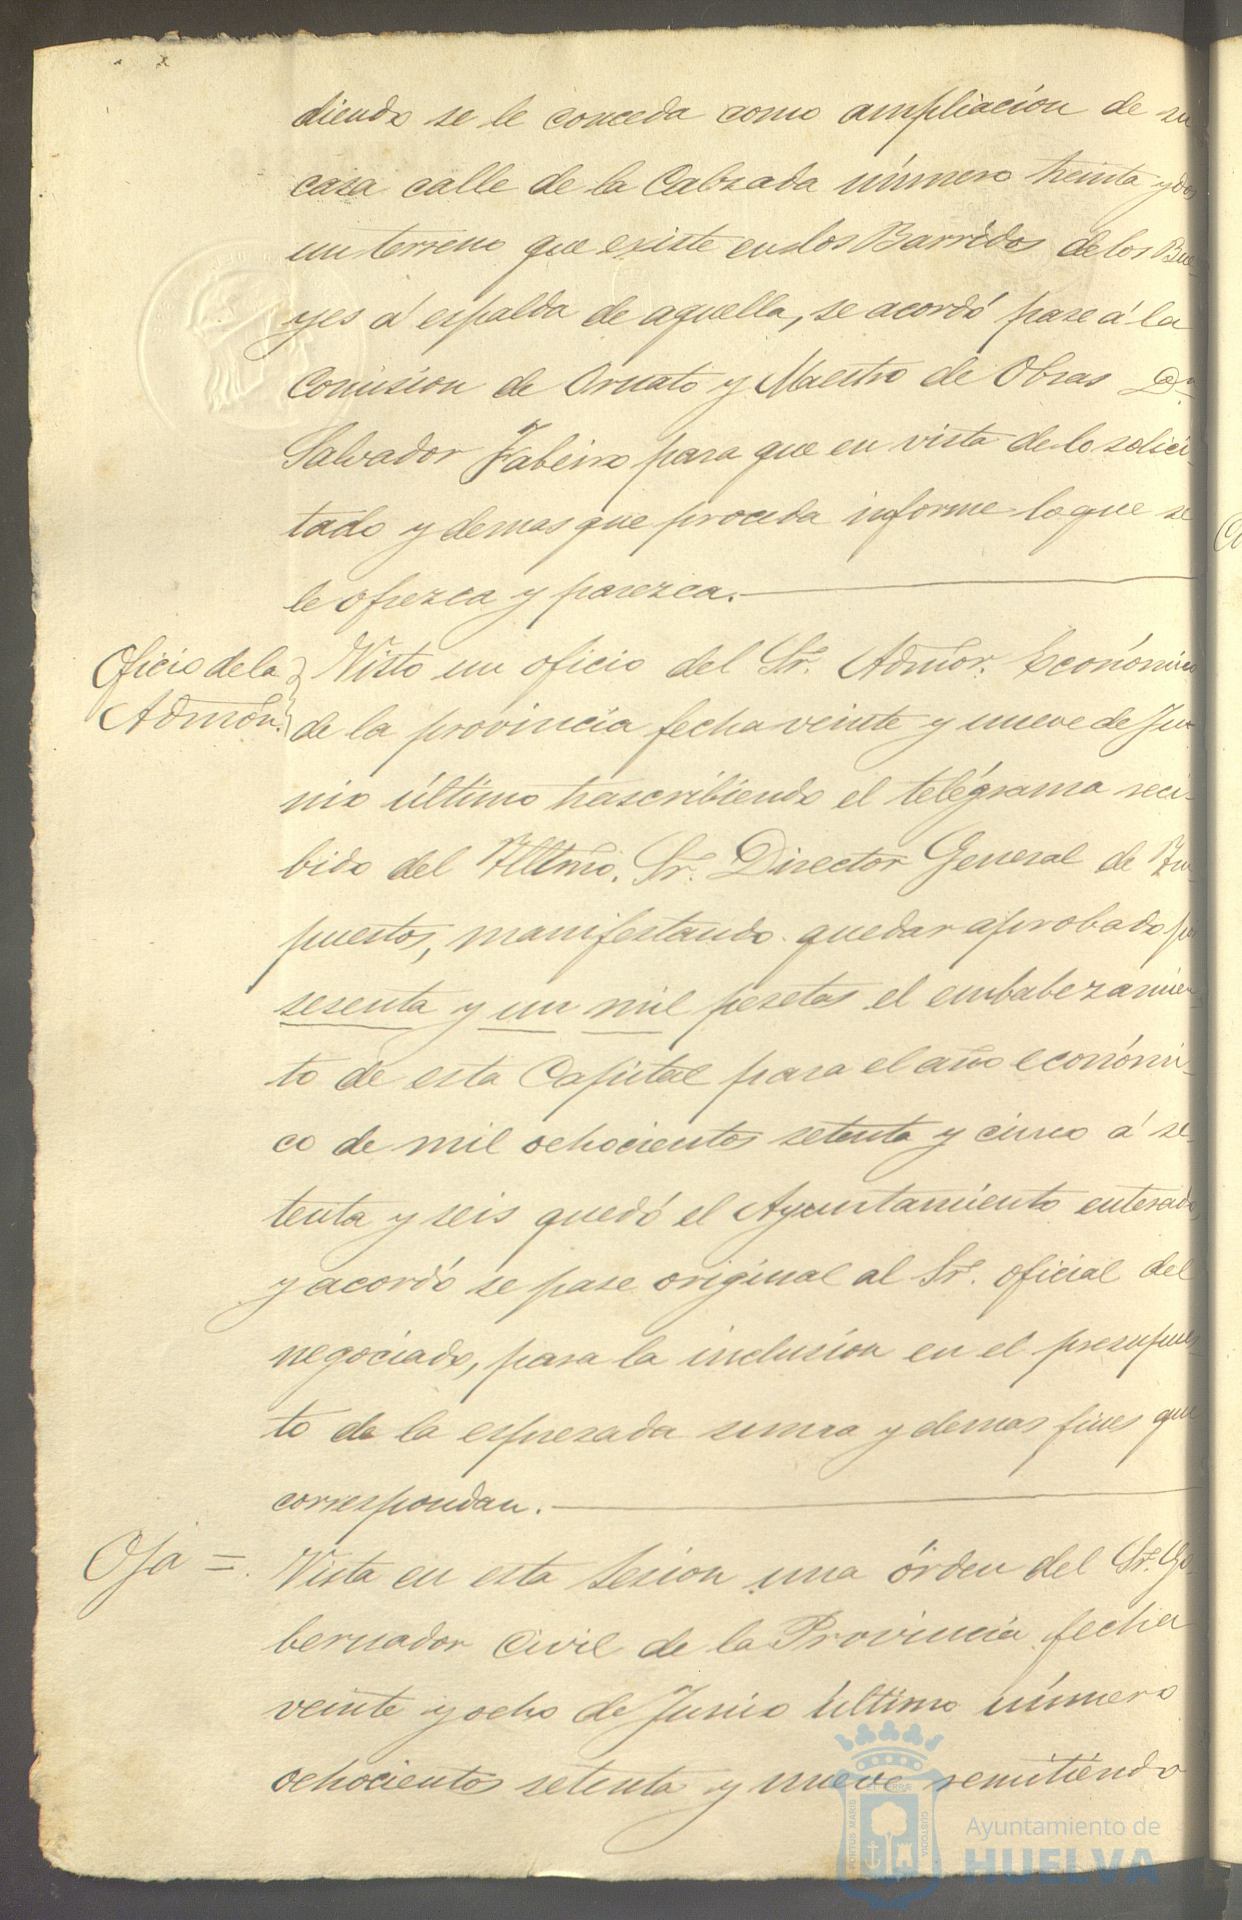 diendo se le conceda como ampliación de su
casa calle de la Calzada número treinta y dos
un terreno que existe en los Barridos de los Bue-
yes á espalda de aquella, se acordó pase á la
Comision de Ornato y Maestro de Obras Dn
Salvador Fabeiro para que en vista de lo solici-
tado y demas que proceda informe lo que se
le ofrezca y parezca.
Oficio de la
Admón.
Visto un oficio del Sr. Admor. Económico
de la provincia fecha veinte y nueve de Ju-
nio último trascribiendo el telégrama reci-
bido del Iltmo. Sr. Director General de Im-
puestos, manifestando quedar aprobado por
sesenta y un mil pesetas el embabezamien-
to de esta Capital para el año económi-
co de mil ochocientos setenta y cinco á se-
tenta y seis quedó el Ayuntamiento enterado,
y acordó se pase original al Sr. oficial del
negociado, para la inclusion en el presupues-
to de la espresada suma y demas fines que
correspondan.
Oja =.
Vista en esta sesion una órden del Sr. Go-
bernador Civil de la Provincia fecha
veinte y ocho de Junio último número
ochocientos setenta y nueve remitiendo
PORTUS MARIS ET TERRÆ CUSTODIA
Ayuntamiento de
HUELVA